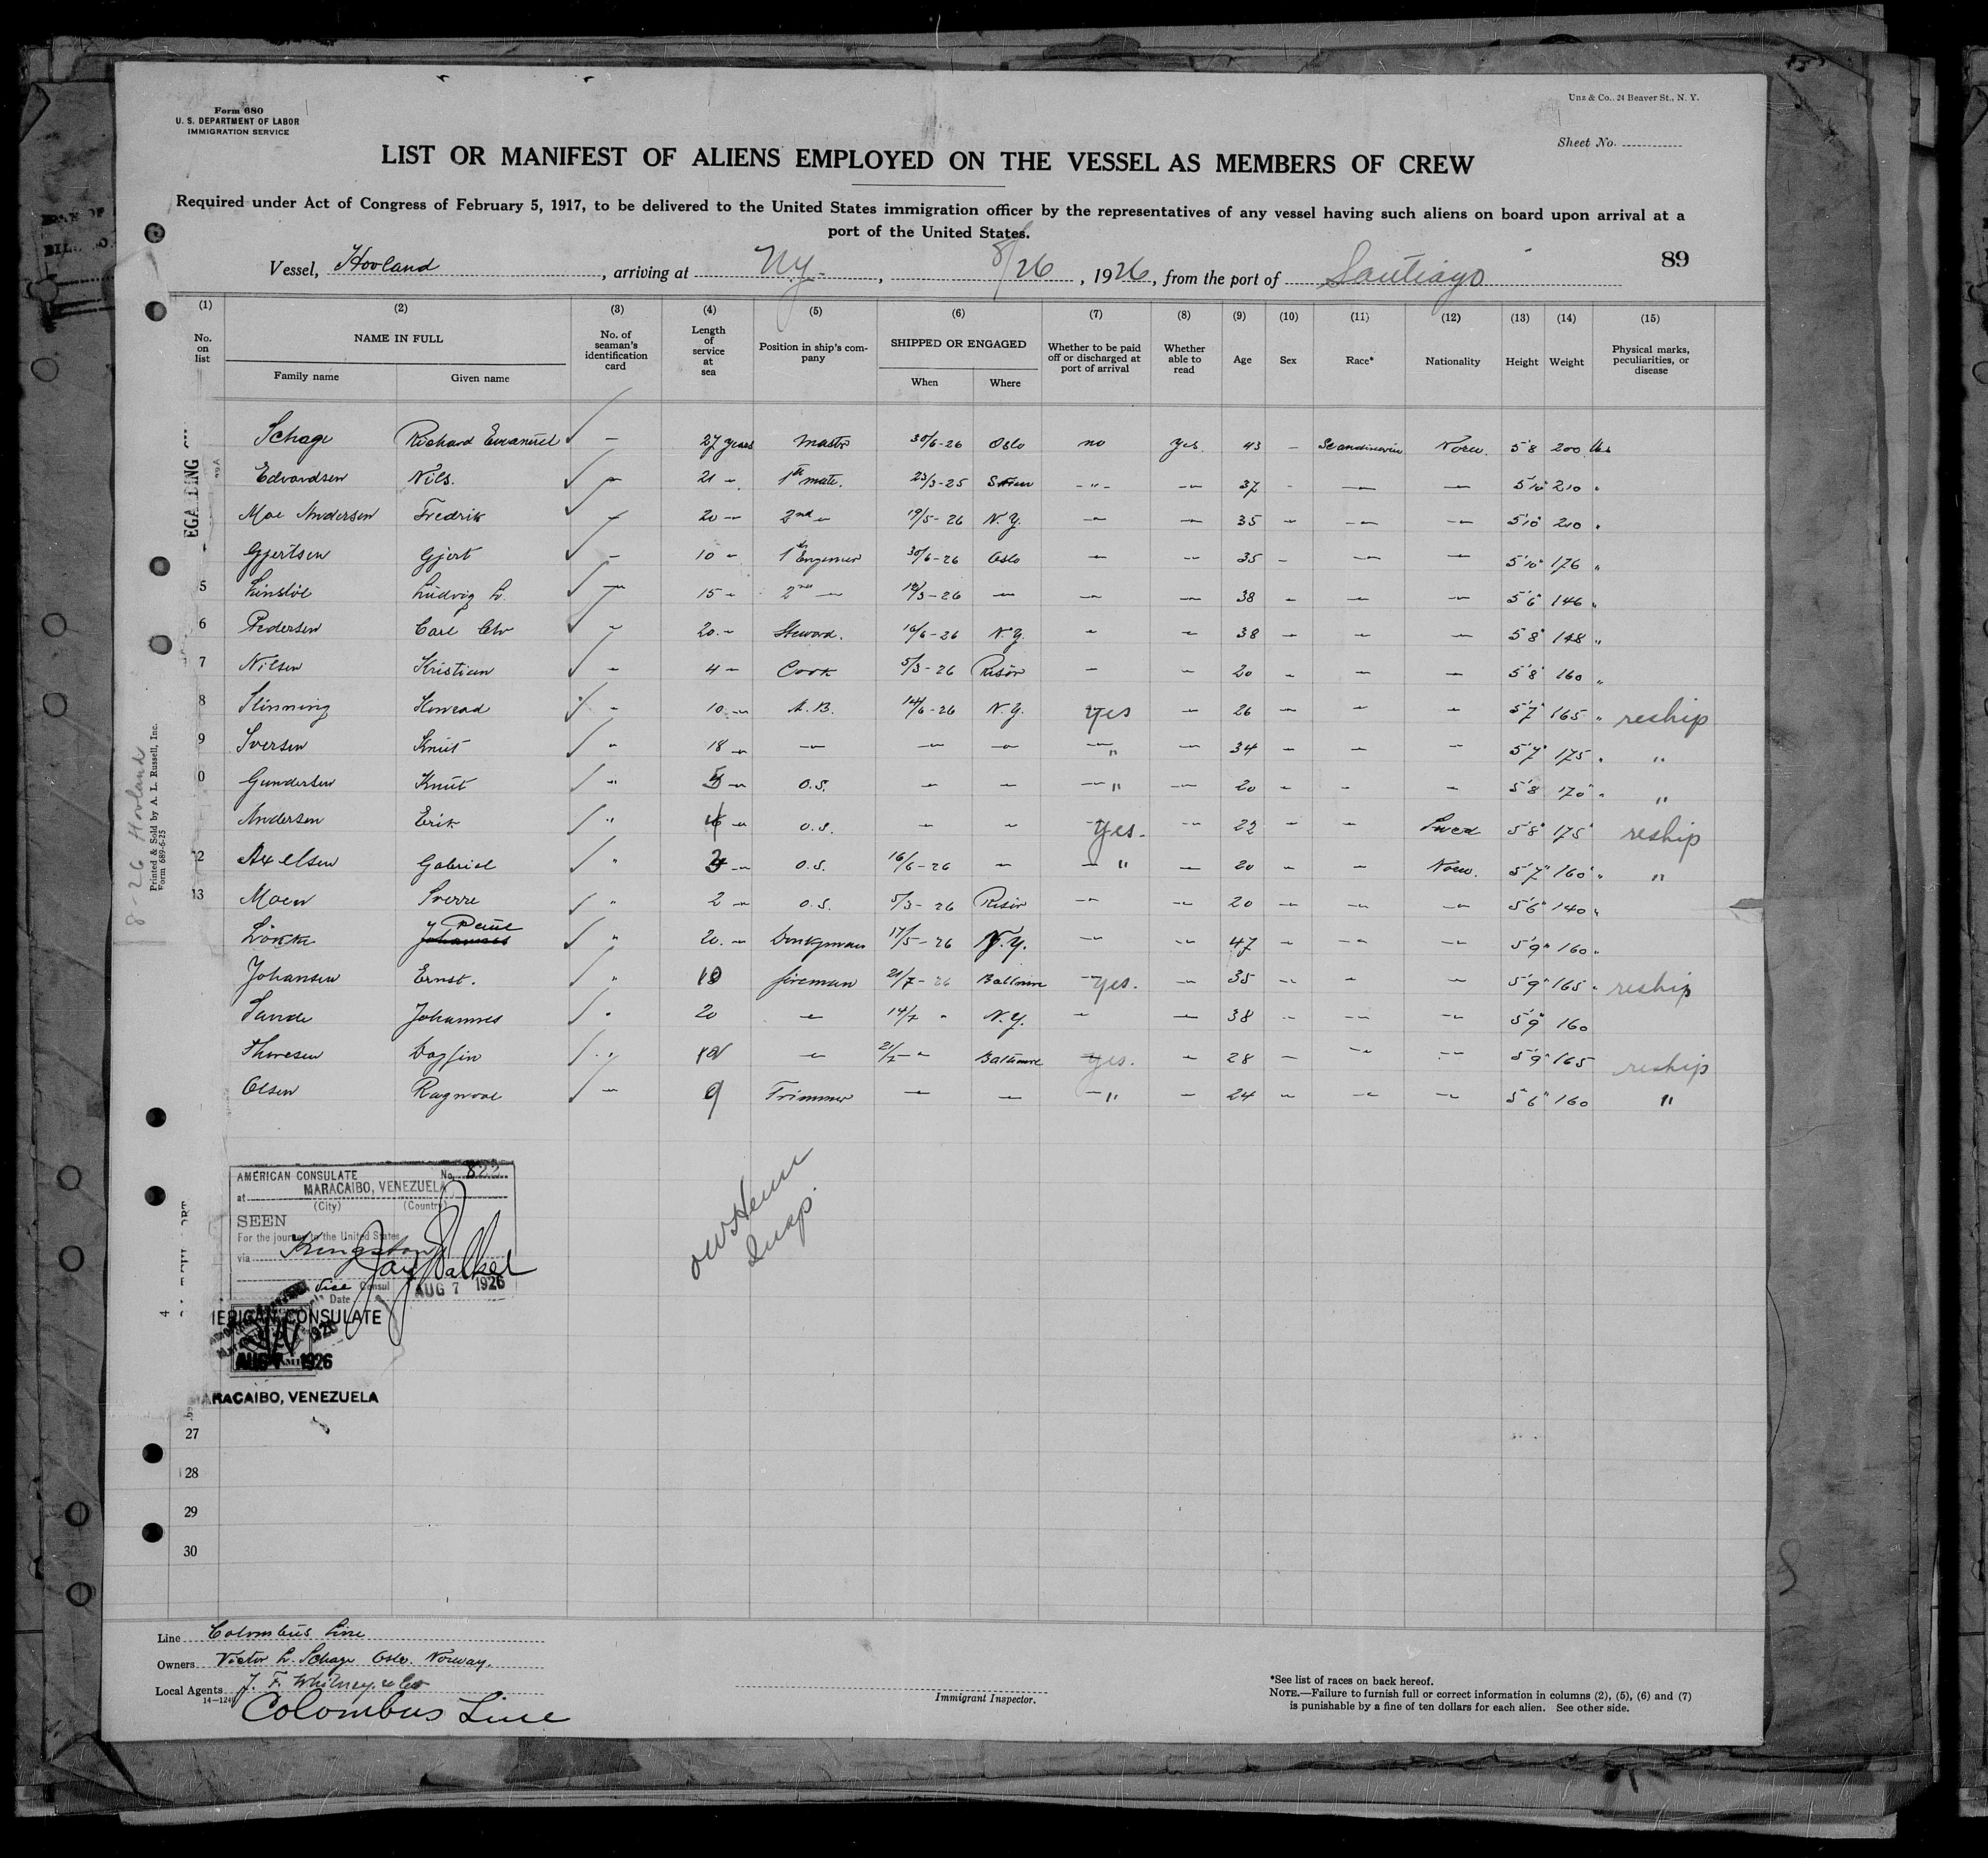 Form 680
U. S. DEPARTMENT OF LABOR
IMMIGRATION SERVICE
Unz & Co., 24 Beaver St., N. Y.
Sheet No.
LIST OR MANIFEST OF ALIENS EMPLOYED ON THE VESSEL AS MEMBERS OF CREW
Required under Act of Congress of February 5, 1917, to be delivered to the United States immigration officer by the representatives of any vessel having such aliens on board upon arrival at a
port of the United States.
Vessel, Hovland, arriving at NY, 8/26, 1926, from the port of Santiago
89
(1) (2) (3) (4) (5) (6) (7) (8) (9) (10) (11) (12) (13) (14) (15)
No. on list NAME IN FULL Family name Given name No. of seaman's identification card Length of service at sea Position in ship's company SHIPPED OR ENGAGED When Where Whether to be paid off or discharged at port of arrival Whether able to read Age Sex Race* Nationality Height Weight Physical marks, peculiarities, or disease
Schage Richard Emanuel 27 years master 30/6-26 Oslo no yes 43 Scandinavin Norw. 5'8 200 lbs
Edvardsen Nils. 21 1st mate. 23/3-25 37 5'10" 210
Moe Andersen Fredrik 20 2nd 19/5-26 N.Y. 35 5'10" 200
Gjertsen Gjert 10 1st Engenier 30/6-26 Oslo 35 5'10" 176
5 Ludvig L. 15 2nd 38 5'6" 146
6 Pedersen Carl Chr 20 Steward. 16/6-26 N.Y. 38 5'8" 148
7 Nilsen Kristian 4 Cook 5/3-26 Risör 20 5'8" 160
8 Slinning Konrad 10 A.B. 14/6-26 N.Y. yes 26 5'7" 165 reship
9 Iversen Knut 18 34 5'7" 175 "
0 Gundersen Knut 5 O.S. 20 5'8 170 "
Andersen Erik O.S. yes. 22 Swed 5'8" 175 reship
12 Axelsen Gabriel O.S. 16/6-26 " 20 Norw. 5'7" 160 "
13 Moen Sverre 2 O.S. 5/3-26 Risör 20 5'6" 140
Lökke Johannes 20 Donkyman 17/5-26 N.Y. 47 5'9" 160
Johansen Ernst. 10 fireman 21/7-26 Baltimore yes. 35 5'9" 165 reship
Sande Johannes 20 14/7 " N.Y. 38 5'9" 160
Thoresen Dagfin 21/7 Baltimore yes. 28 5'9" 165 reship
Olsen Ragnval 9 Trimmer " 24 5'6" 160 "
27
28
29
30
8-26 Hovland
Printed & Sold by A. L. Russell, Inc.
Form 689-6-25
AMERICAN CONSULATE No. 822
at MARACAIBO, VENEZUELA
(City) (Country)
SEEN
For the journey to the United States
via Kingston
Jay Walker
Vice Consul
Date AUG 7 1926
ERICAN CONSULATE
AUG 7 1926
ARACAIBO, VENEZUELA
Line Colombus Line
Owners Victor L. Schage Oslo. Norway.
Local Agents J. F. Whitney & Co
14-1240
Colombus Line
Immigrant Inspector.
*See list of races on back hereof.
NOTE.—Failure to furnish full or correct information in columns (2), (5), (6) and (7)
is punishable by a fine of ten dollars for each alien. See other side.